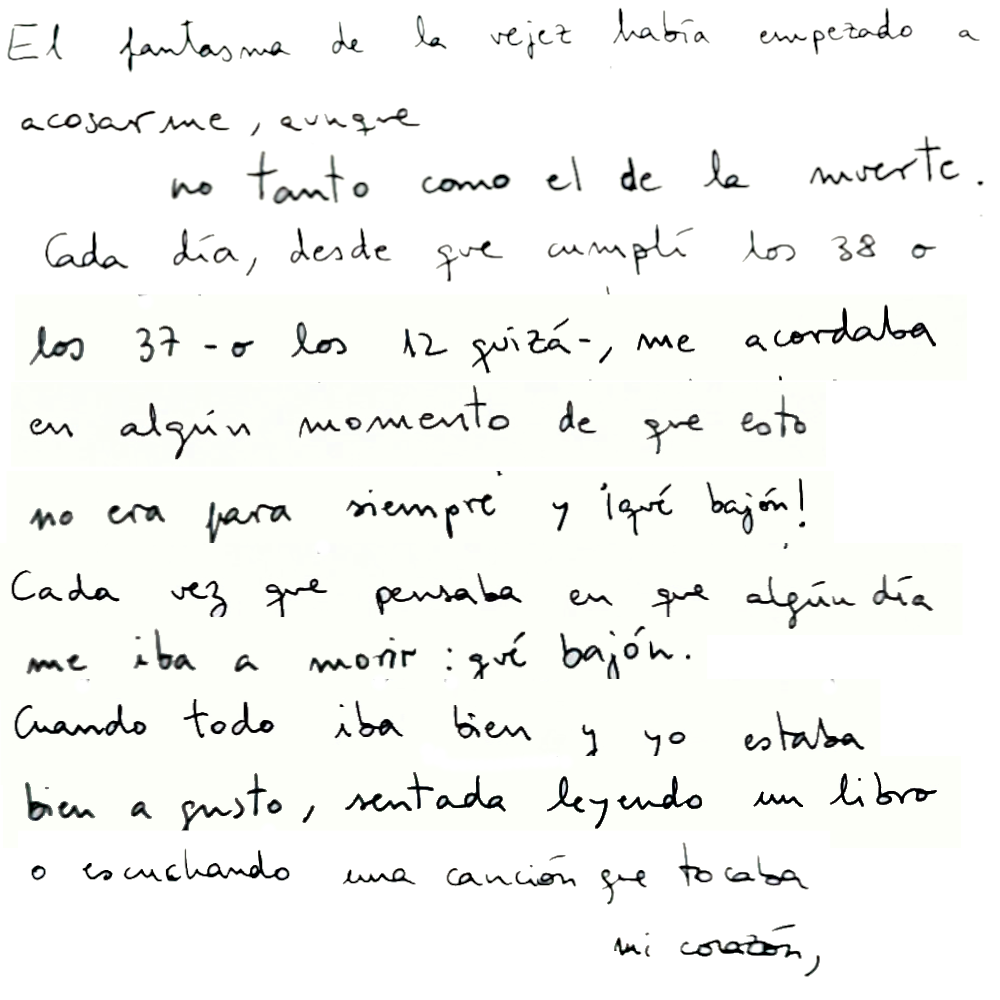 El fantasma de la vejez había empezado a
acosarme, aunque
no tanto como el de la muerte.
Cada día, desde que cumplí los 38 o
los 37 - o los 12 quizá-, me acordaba
en algún momento de que esto
no era para siempre y ¡qué bajón!
Cada vez que pensaba en que algún día
me iba a morir: qué bajón.
Cuando todo iba bien y yo estaba
bien a gusto, sentada leyendo un libro
o escuchando una canción que tocaba
mi corazón,